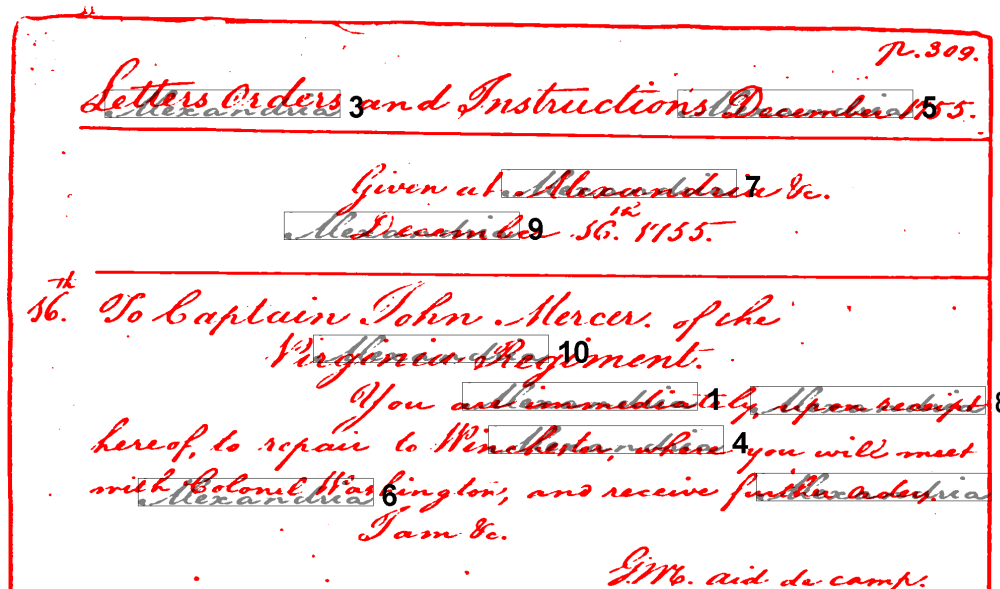 p. 309.
Letters Orders and Instructions December 1755.
3 5
Given at Alexandria &c.
7
December 16.th 1755.
9
16.th To Captain John Mercer. of the
Virginia Regiment.
10
You are immediately, upon receipt
1 8
hereof, to repair to Winchester, where you will meet
4
with Colonel Washington, and receive further orders.
6
I am &c.
G.M. aid de camp.